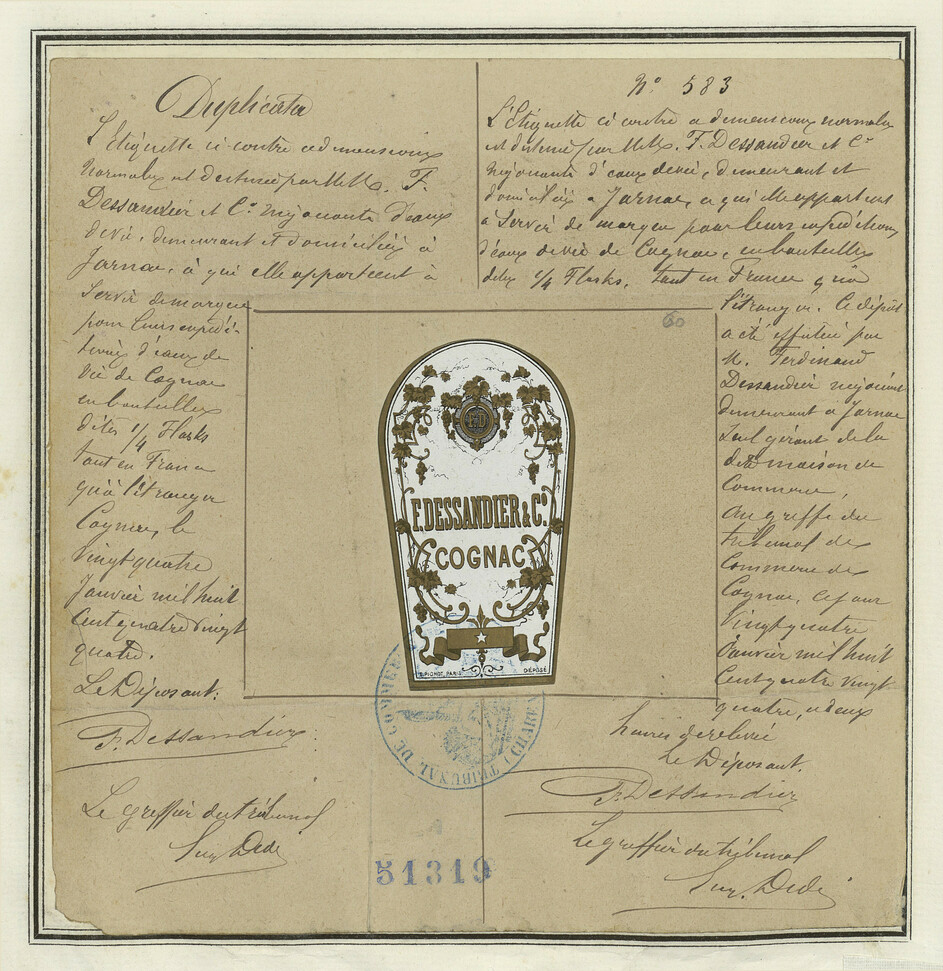 Duplicata
L'Etiquette ci-contre a dimensions
normales est destinée par MM. F.
Dessandier et Cie négociants d'eaux
de vie, demeurant et domiciliés à
Jarnac, à qui elle appartient à
servir de marque
pour leurs expédi-
tions d'eaux de
vie de Cognac
en bouteilles
dites 1/4 Flasks
tant en France
qu'à l'étranger
Cognac, le
vingt quatre
Janvier mil huit
cent quatre vingt
quatre.
Le Déposant:
F. Dessandier
Le greffier du tribunal
N° 583
L'Etiquette ci contre a dimensions normales
est destinée par MM. F. Dessandier et Cie
négociants d'eaux de vie, demeurant et
domiciliés à Jarnac, à qui elle appartient
à servir de marque pour leurs expéditions
d'eaux de vie de Cognac, en bouteilles
dites 1/4 Flasks, tant en France qu'à
l'étranger. Ce dépôt
a été effectué par
M. Ferdinand
Dessandier négociant
demeurant à Jarnac
seul gérant de la
dite maison de
Commerce,
au greffe du
tribunal de
Commerce de
Cognac, ce jour
vingt quatre
Janvier mil huit
cent quatre vingt
quatre, à deux
heures de relevée
Le Déposant.
F. Dessandier
Le greffier du tribunal
60
F.D
F. DESSANDIER & Cº.
COGNAC
PICHOT, PARIS
DÉPOSÉ
TRIBUNAL DE COMMERCE
51319